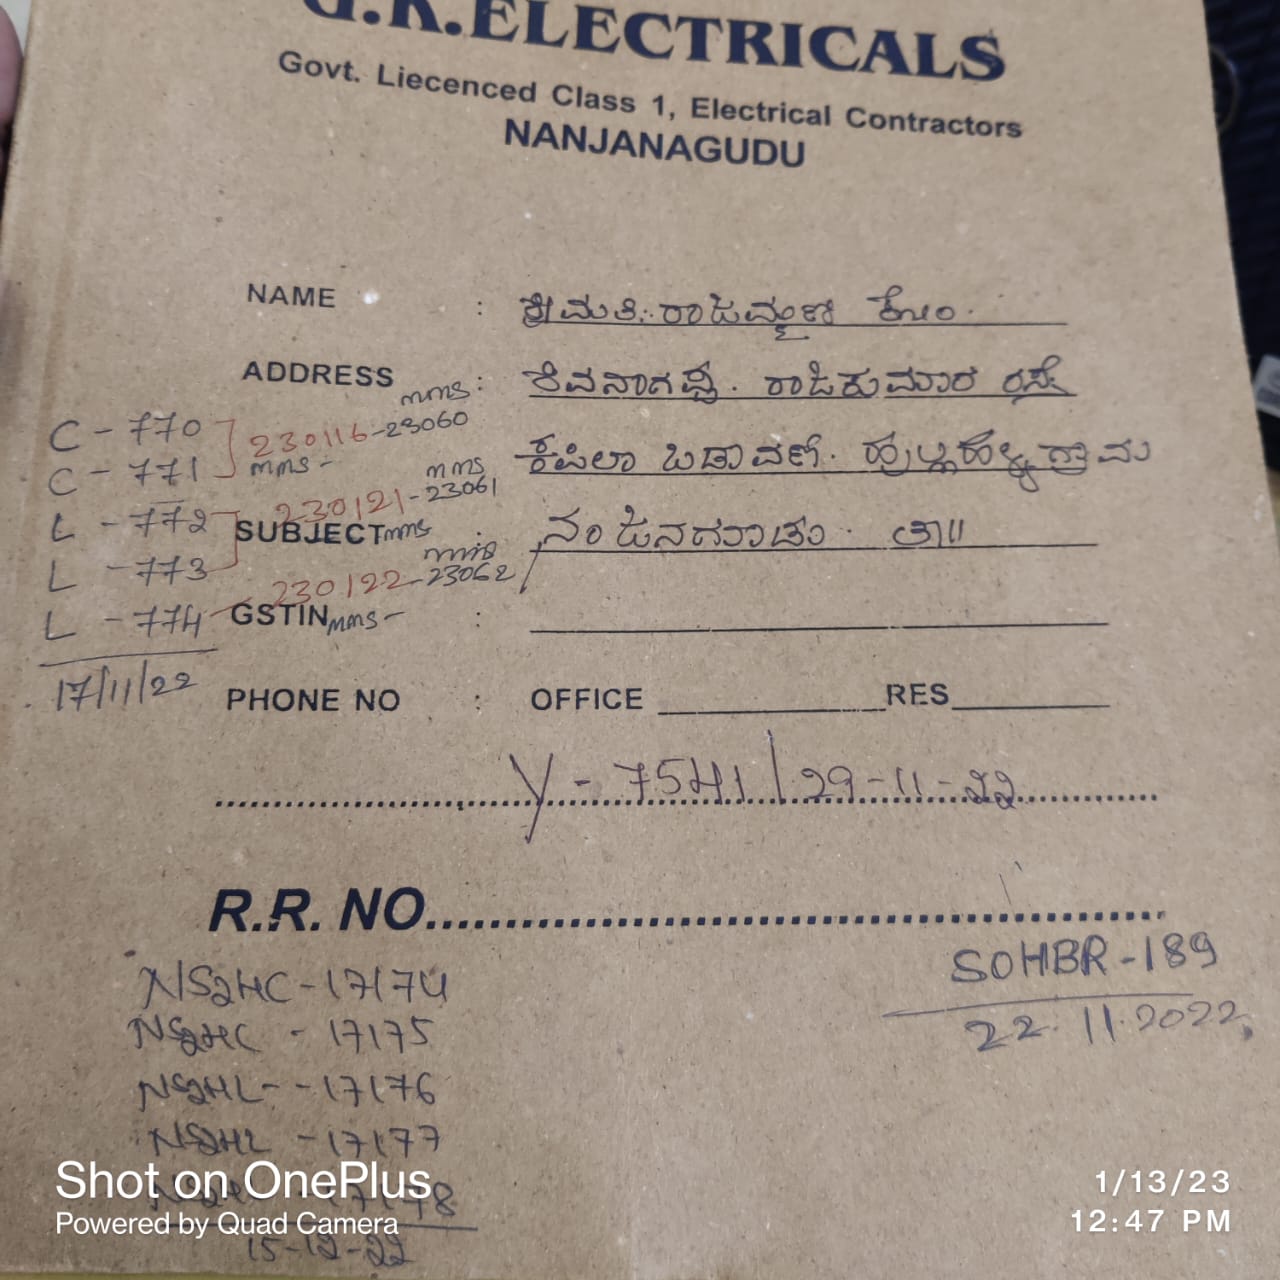 G.R.ELECTRICALS
Govt. Liecenced Class 1, Electrical Contractors
NANJANAGUDU
NAME : ಶ್ರೀಮತಿ. ರಾಜಮ್ಮಣಿ ಕೋಂ.
ADDRESS : ಶಿವನಾಗಪ್ಪ. ರಾಜಕುಮಾರ ರಸ್ತೆ
mms
C - 770 230116-23060
C - 771 mms - ಕಪಿಲಾ ಬಡಾವಣೆ. ಹುಲ್ಲಹಳ್ಳಿ ಗ್ರಾಮ
mms
L - 772 230121-23061
SUBJECT mms : ನಂಜನಗೂಡು. ತಾ||
mms
L - 773 230122-23062
L - 774 GSTIN mms - :
17/11/22
PHONE NO : OFFICE RES
Y - 7541 / 29-11-22
R.R. NO
SOHBR - 189
22.11.2022
NS2HC - 17174
NS2HC - 17175
NS2HL - - 17176
NS2HL - 17177
17178
15-12-22
Shot on OnePlus
Powered by Quad Camera
1/13/23
12:47 PM